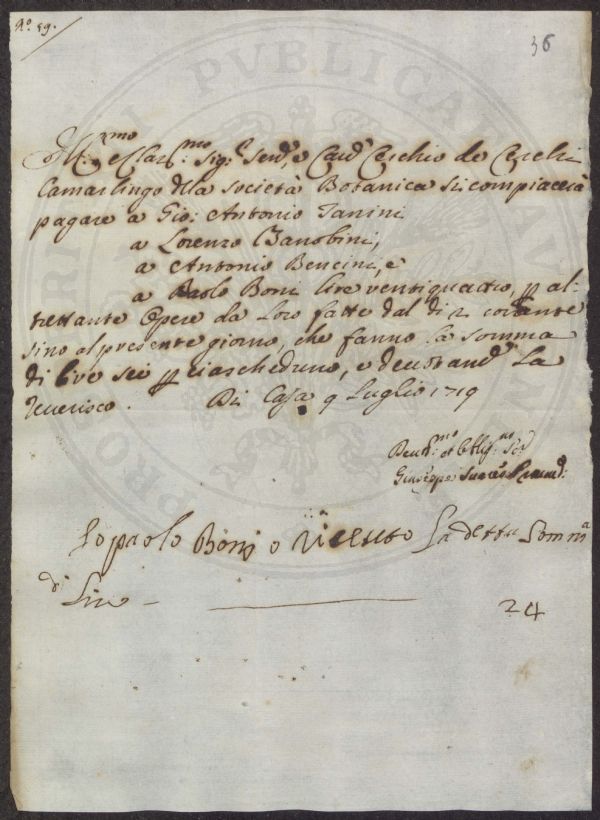 N.o 59.
36
Ill.mo e Clar.mo Sig.e Send.e Cav.e Cerchio de Cerchi
Camarlingo della Società Botanica si compiacerà
pagare a Gio: Antonio Janini
a Lorenzo Banobini,
a Antonio Bencini, e
a Paolo Boni lire ventiquattro, p al-
trettante Opere da Loro fatte dal dì 2 corrante
sino al presente giorno, che fanno la somma
di lire sei p ciascheduno, e devotam.e La
reverisco. Di Casa 9 Luglio 1719
Dev.mo et Obblig.mo Ser.
Giuseppe
Io paolo Boni o riceuto La detta Somma
di Lire — 24